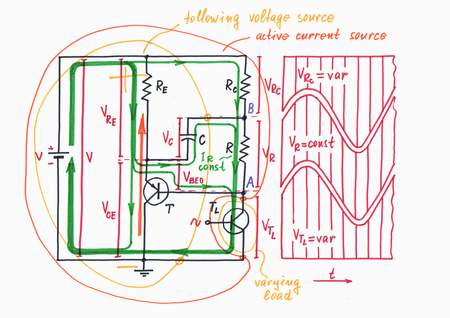 following voltage source
active current source
R_E
R_C
V_RC
V_RC = var
B
V_RE
V_C
C
I_R
const
R
V_R
V_R = const
V
V
V_BE0
A
T
T_L
V_CE
~
V_TL
V_TL = var
varying
load
t